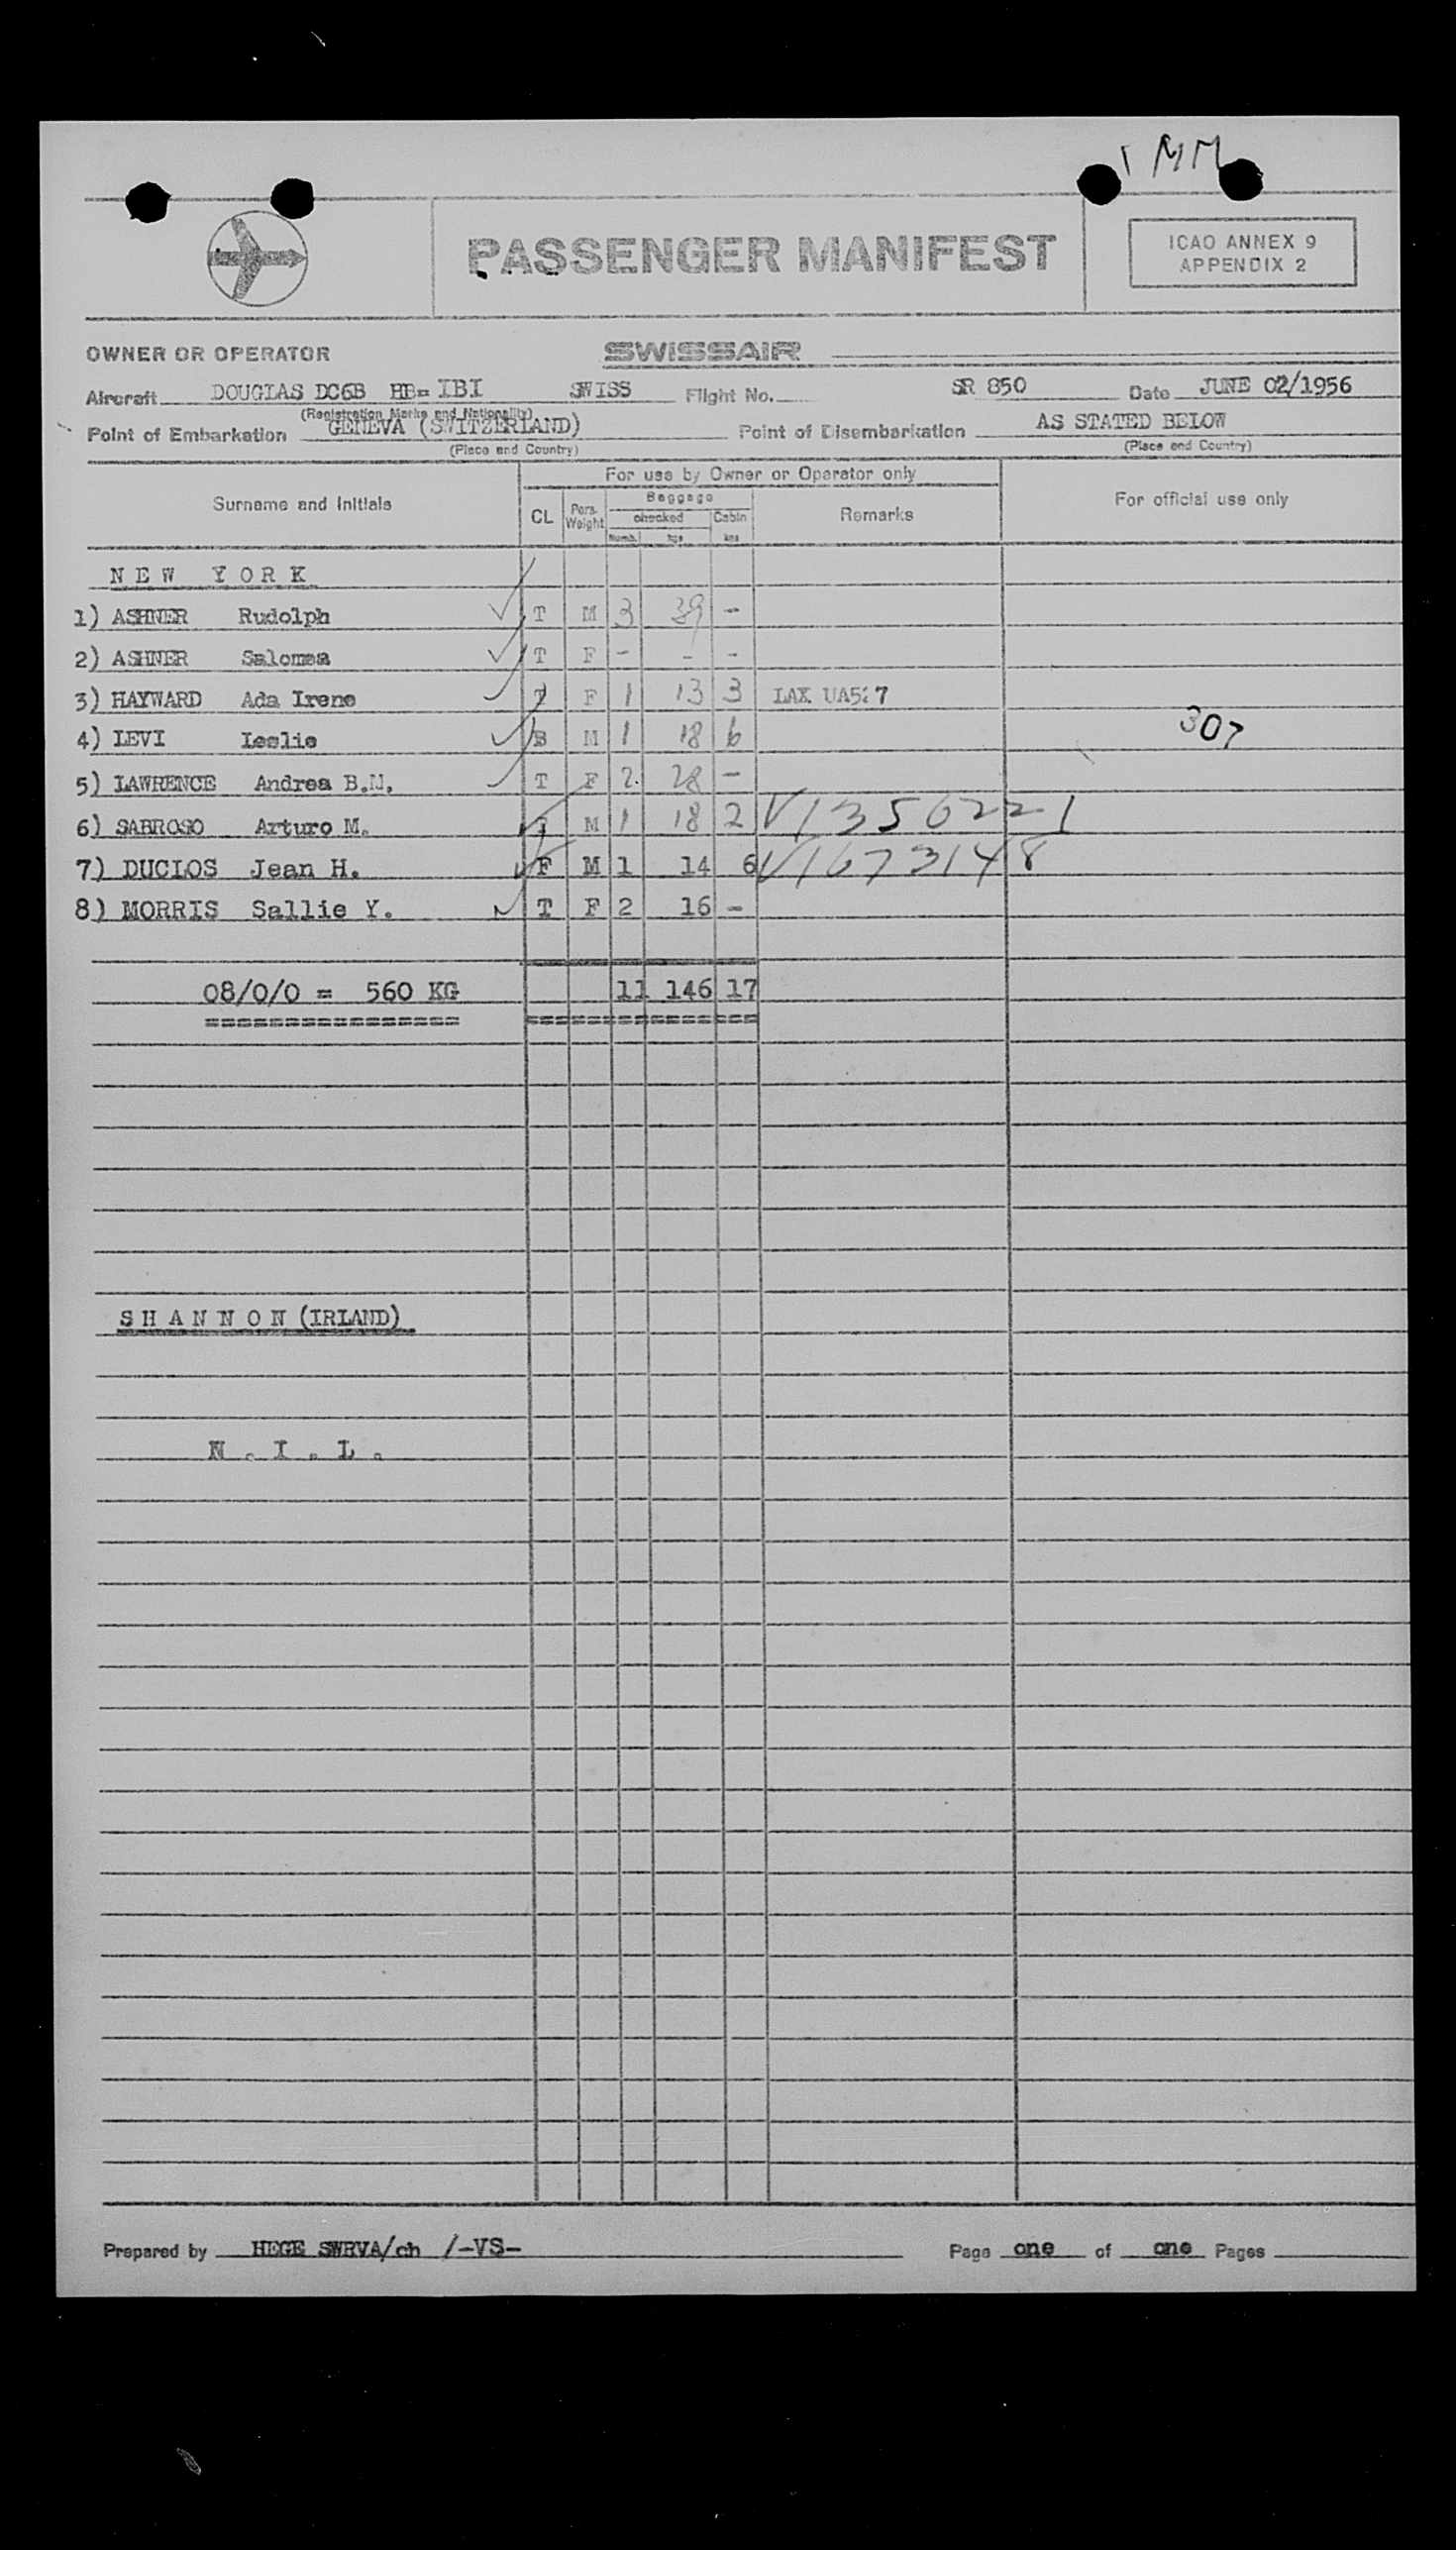 1 MM
PASSENGER MANIFEST
ICAO ANNEX 9
APPENDIX 2
OWNER OR OPERATOR SWISSAIR
Aircraft DOUGLAS DC6B HB=IBI SWISS Flight No. SR 850 Date JUNE 02/1956
(Registration Marks and Nationality)
Point of Embarkation GENEVA (SWITZERLAND) Point of Disembarkation AS STATED BELOW
(Place and Country) (Place and Country)
For use by Owner or Operator only
Surname and Initials CL Pers. Weight Baggage checked Cabin Remarks For official use only
Numb. kgs kgs
NEW YORK
1) ASHNER Rudolph T M 3 39 -
2) ASHNER Salomea T F - - -
3) HAYWARD Ada Irene T F 1 13 3 LAX UA527
4) LEVI Leslie B M 1 18 6 307
5) LAWRENCE Andrea B.M. T F 2. 28 -
6) SABROSO Arturo M. M 1 18 2 V1356221
7) DUCLOS Jean H. F M 1 14 6 V1673148
8) MORRIS Sallie Y. T F 2 16 -
08/0/0 = 560 KG 11 146 17
================ ===============
SHANNON (IRLAND)
N . I . L .
Prepared by HEGE SWRVA/ch /-VS- Page one of one Pages